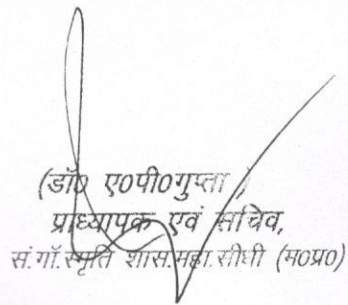 (डॉ0 ए०पी०गुप्ता )
प्राध्यापक एवं सचिव,
सं.गॉ.स्मृति शास.महा.सीधी (म०प्र०)